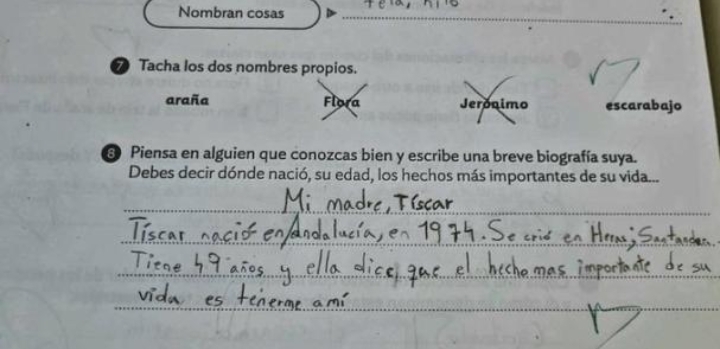 Nombran cosas
tela, hilo
7 Tacha los dos nombres propios.
araña Flora Jerónimo escarabajo
8 Piensa en alguien que conozcas bien y escribe una breve biografía suya.
Debes decir dónde nació, su edad, los hechos más importantes de su vida...
Mi madre, Tíscar
Tíscar nació en Andalucía, en 1974. Se crió en Heras, Santander.
Tiene 49 años y ella dice que el hecho mas importante de su
vida es tenerme a mí